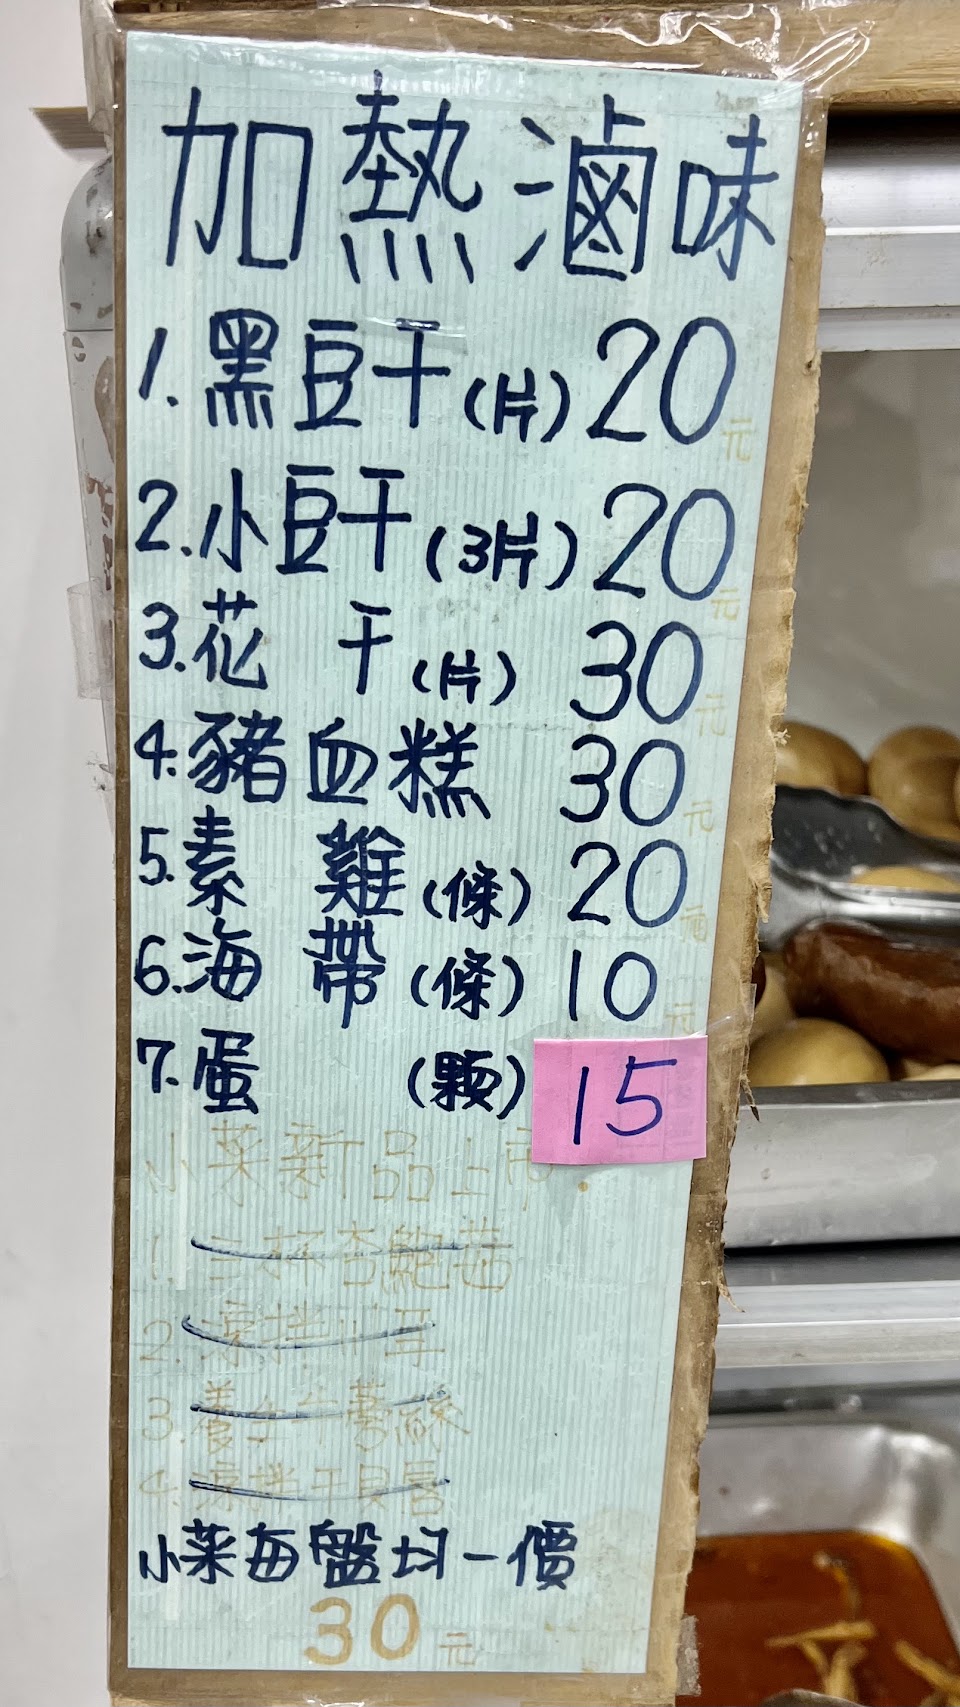 加熱滷味
1.黑豆干(片)20元
2.小豆干(3片)20元
3.花干(片)30元
4.豬血糕30元
5.素雞(條)20元
6.海帶(條)10元
7.蛋(顆)15
小菜新品上市.
1.三杯杏鮑菇
2.涼拌川耳
3.養生牛蒡絲
4.涼拌干貝唇
小菜每盤均一價
30元